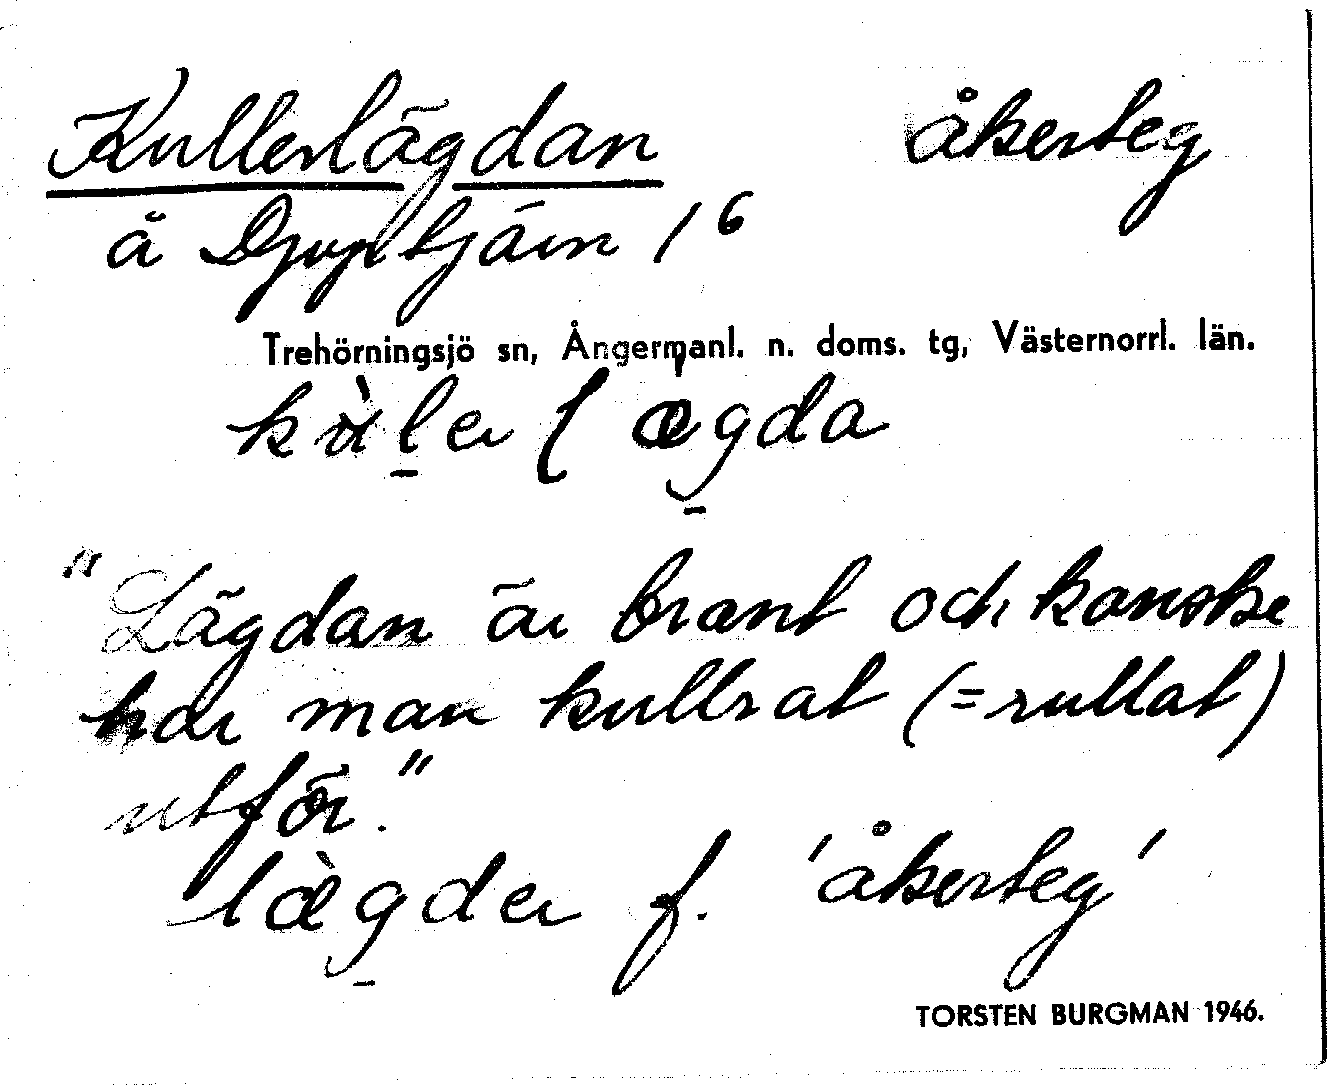 Kullerlägdan åkerteg
å Djuptjärn 1⁶
Trehörningsjö sn, Ångermanl. n. doms. tg, Västernorrl. län.
kùler lægda
"Lägdan är brant och kanske
har man kullrat (=rullat)
utför."
lægder f. 'åkerteg'
TORSTEN BURGMAN 1946.